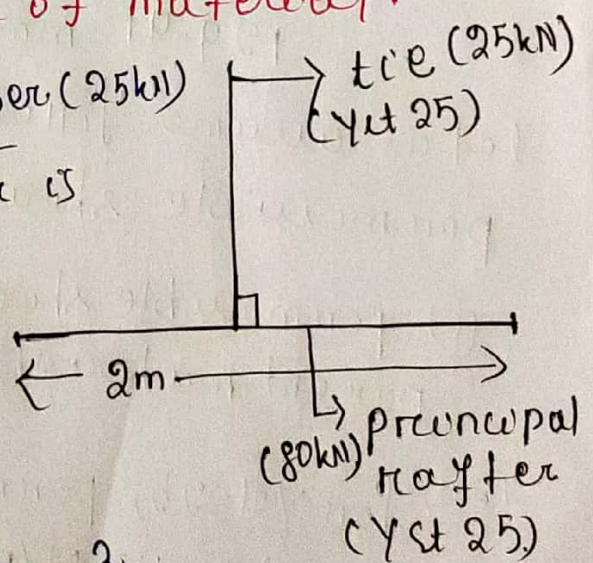 of material.
er (25kN)
is
tie (25kN)
(Yst 25)
2m
(80kN) Principal
rafter
(Yst 25)
2